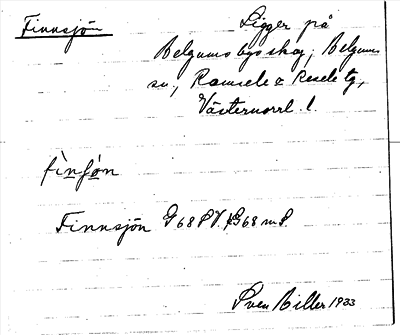 Finnsjön
Ligger på
Belgums bys skog, Belgums
sn, Ramsele & Resele tg,
Västernorrl. l.
fìnʃø̀n
Finnsjön G 68 SV. G68 m S.
Sven Biller 1933